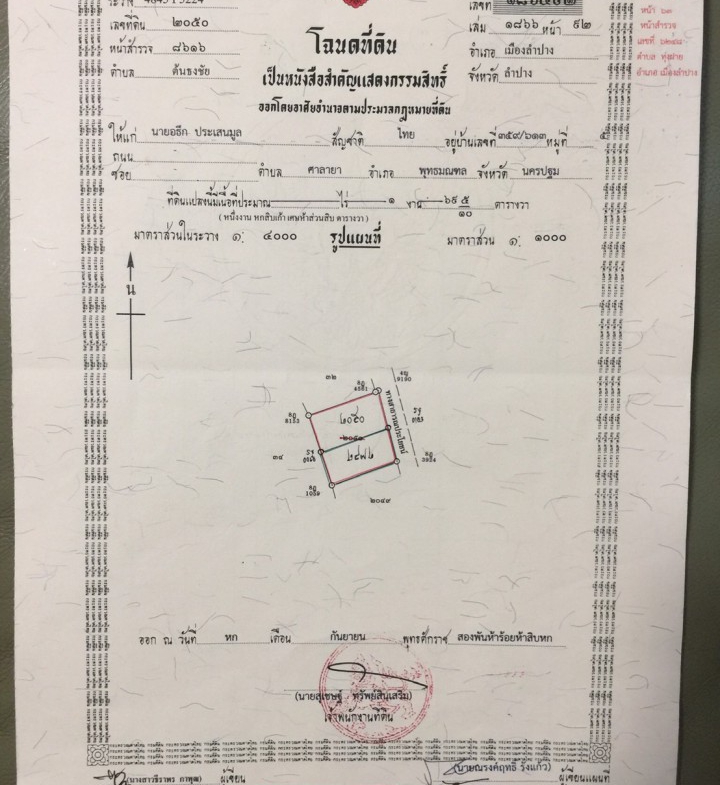 ระวาง 4845 I 5224
เลขที่ดิน ๒๐๕๐
หน้าสำรวจ ๘๖๑๖
ตำบล ต้นธงชัย
เลขที่
เล่ม ๑๘๖๖ หน้า ๙๒
อำเภอ เมืองลำปาง
จังหวัด ลำปาง
หน้า ๖๓
หน้าสำรวจ
เลขที่
ตำบล ทุ่งฝาย
อำเภอ เมืองลำปาง
โฉนดที่ดิน
เป็นหนังสือสำคัญแสดงกรรมสิทธิ์
ออกโดยอาศัยอำนาจตามประมวลกฎหมายที่ดิน
ให้แก่ นายอธึก ประเสนมูล สัญชาติ ไทย อยู่บ้านเลขที่ ๓๕๙/๖๑๓ หมู่ที่ ๕
ถนน
ซอย - ตำบล ศาลายา อำเภอ พุทธมณฑล จังหวัด นครปฐม
ที่ดินแปลงนี้มีเนื้อที่ประมาณ - ไร่ ๑ งาน ๖๙ ๕/๑๐ ตารางวา
( หนึ่งงาน หกสิบเก้า เศษห้าส่วนสิบ ตารางวา )
มาตราส่วนในระวาง ๑: ๔๐๐๐ รูปแผนที่ มาตราส่วน ๑: ๑๐๐๐
น
๓๒
๒๐๕๐
๒๐๕๑
๒๔๗๖
ทางสาธารณประโยชน์
๓๔
๒๐๔๙
ออก ณ วันที่ หก เดือน กันยายน พุทธศักราช สองพันห้าร้อยห้าสิบหก
(นายสุเชษฐ์ ทรัพย์สินเสริม)
เจ้าพนักงานที่ดิน
ผู้เขียน
(นายณรงค์ฤทธิ์ รังแก้ว) ผู้เขียนแผนที่